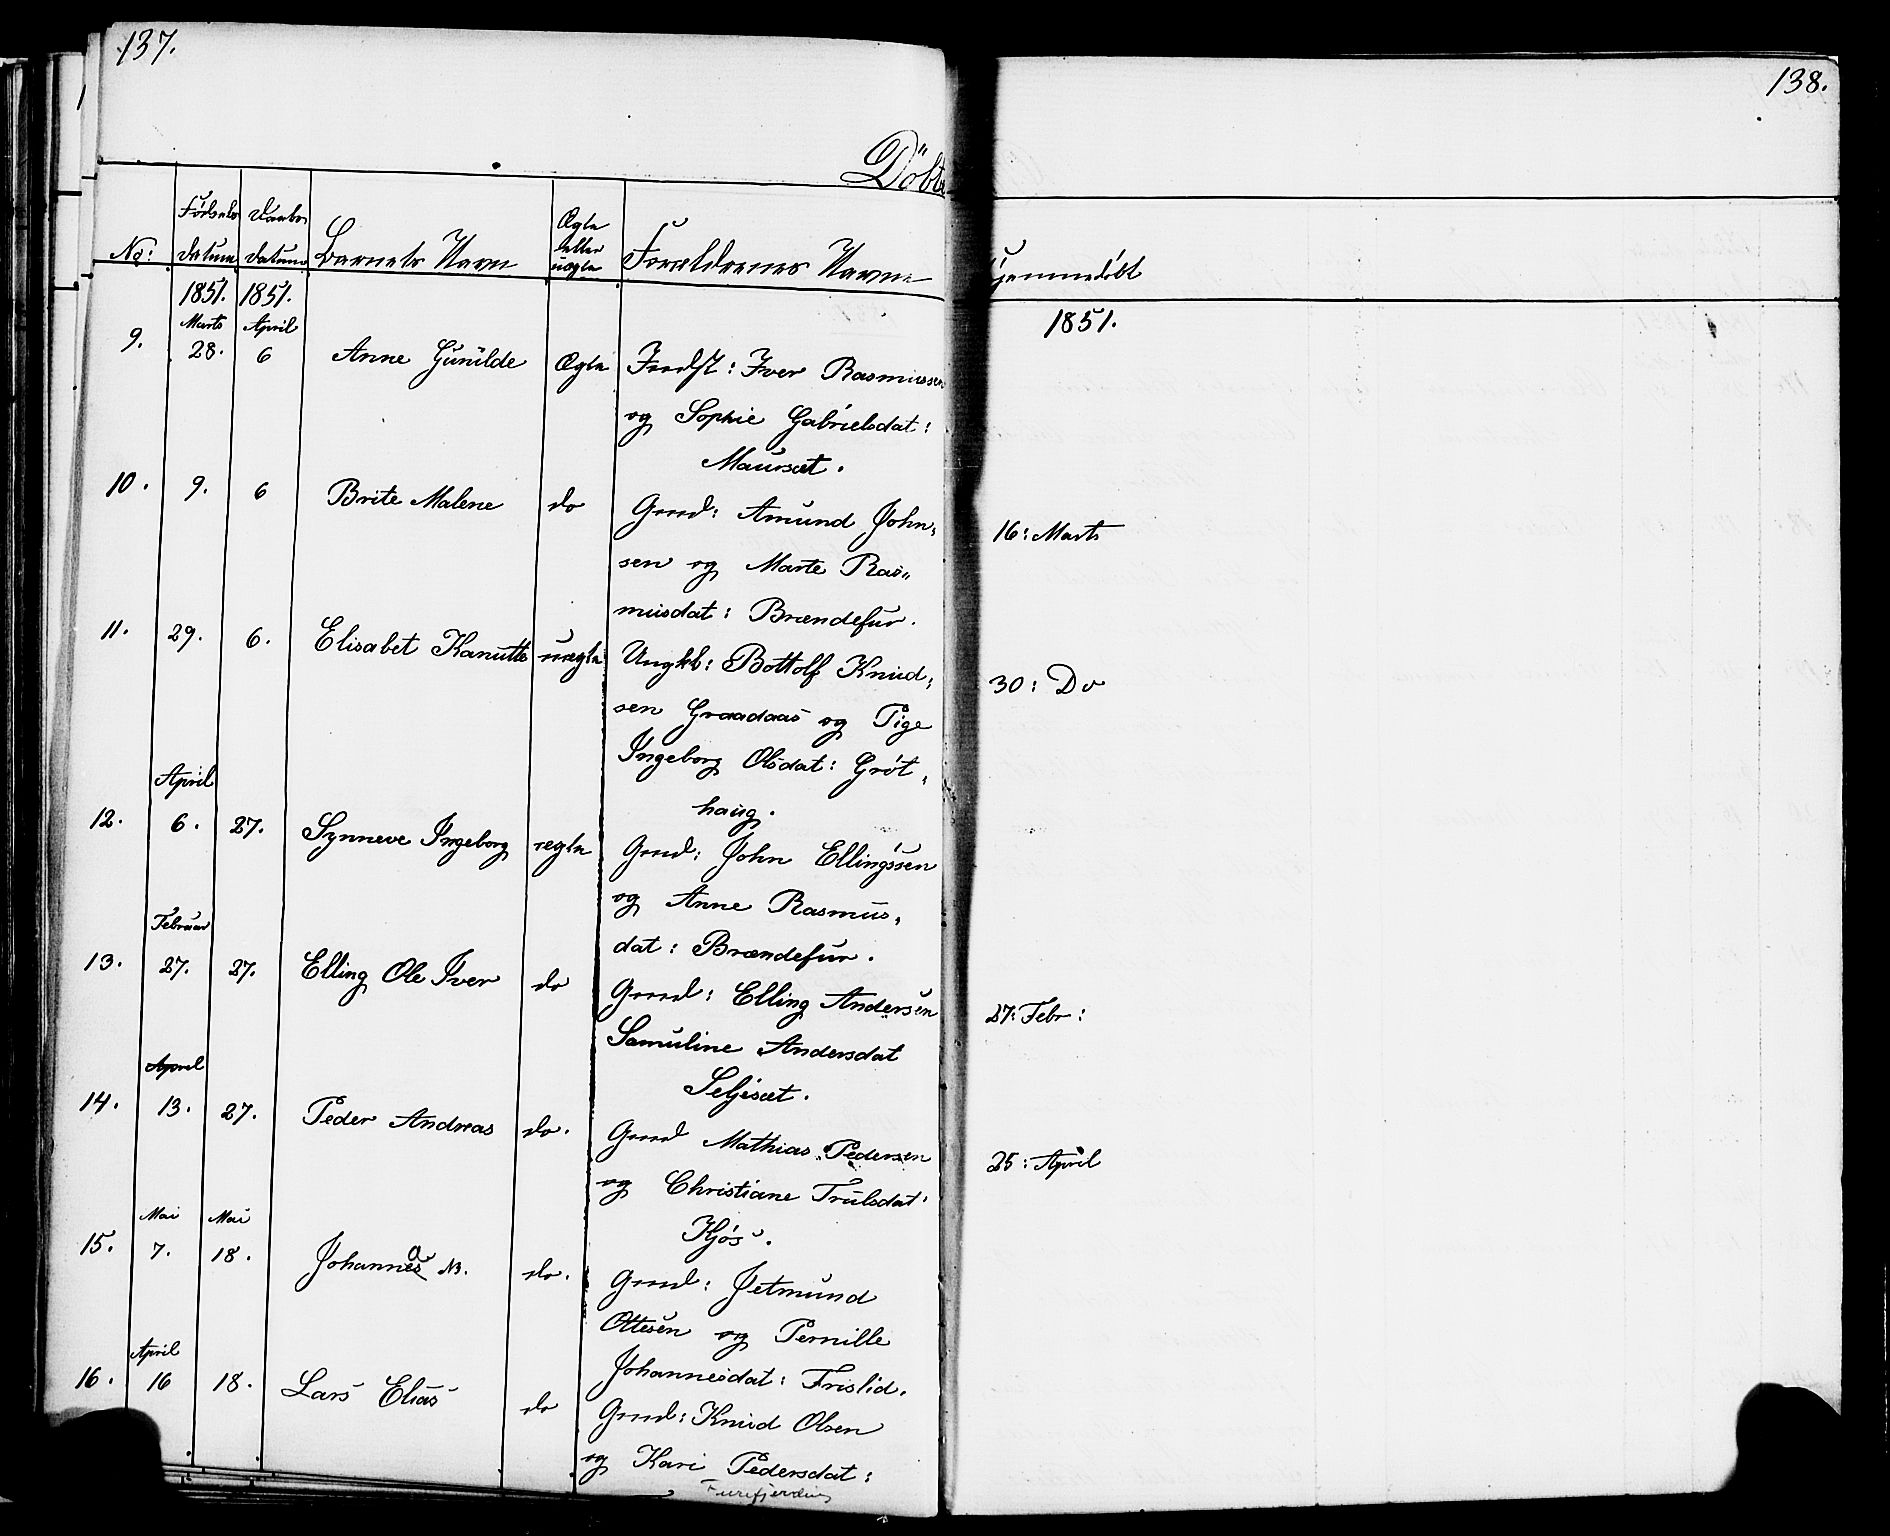 137.
138.
Döbte
No:
Fødsels datum
Daabs datum
Barnets Navn
Ægte eller uægte
Forældrenes Navne
Hjemmedöbt
1851. 1851.
1851.
Marts April
9. 28. 6 Anne Gunilde Ægte Indst: Iver Rasmussen
og Sophie Gabrielsdat:
Maursæt.
10. 9. 6 Brite Malene do Grmd: Amund John, 16: Marts
sen og Marte Ras„
musdat: Brændefur.
11. 29. 6. Elisabet Kanutte uægte Ungkl: Bottolf Knud, 30: Do
sen Graadaas og Pige
Ingeborg Olsdat: Grøt,
haug.
April
12. 6. 27. Synneve Ingeborg ægte Grmd: John Ellingssen
og Anne Rasmus,
dat: Brændefur.
Februar
13. 27. 27. Elling Ole Iver do Grmd: Elling Andersen 27: Febr:
Samuline Andersdat
Seljesæt.
April
14. 13. 27. Peder Andreas do. Grmd Mathias Pedersen 25: April
og Christiane Trulsdat:
Kjøs.
Mai Mai
15. 7. 18. Johannes a NB. do. Grmd: Jetmund
Ottesen og Pernille
Johannesdat: Frislid.
April
16. 16 18. Lars Elias do Grmd: Knud Olsen
og Kari Pedersdat:
Furefjerding